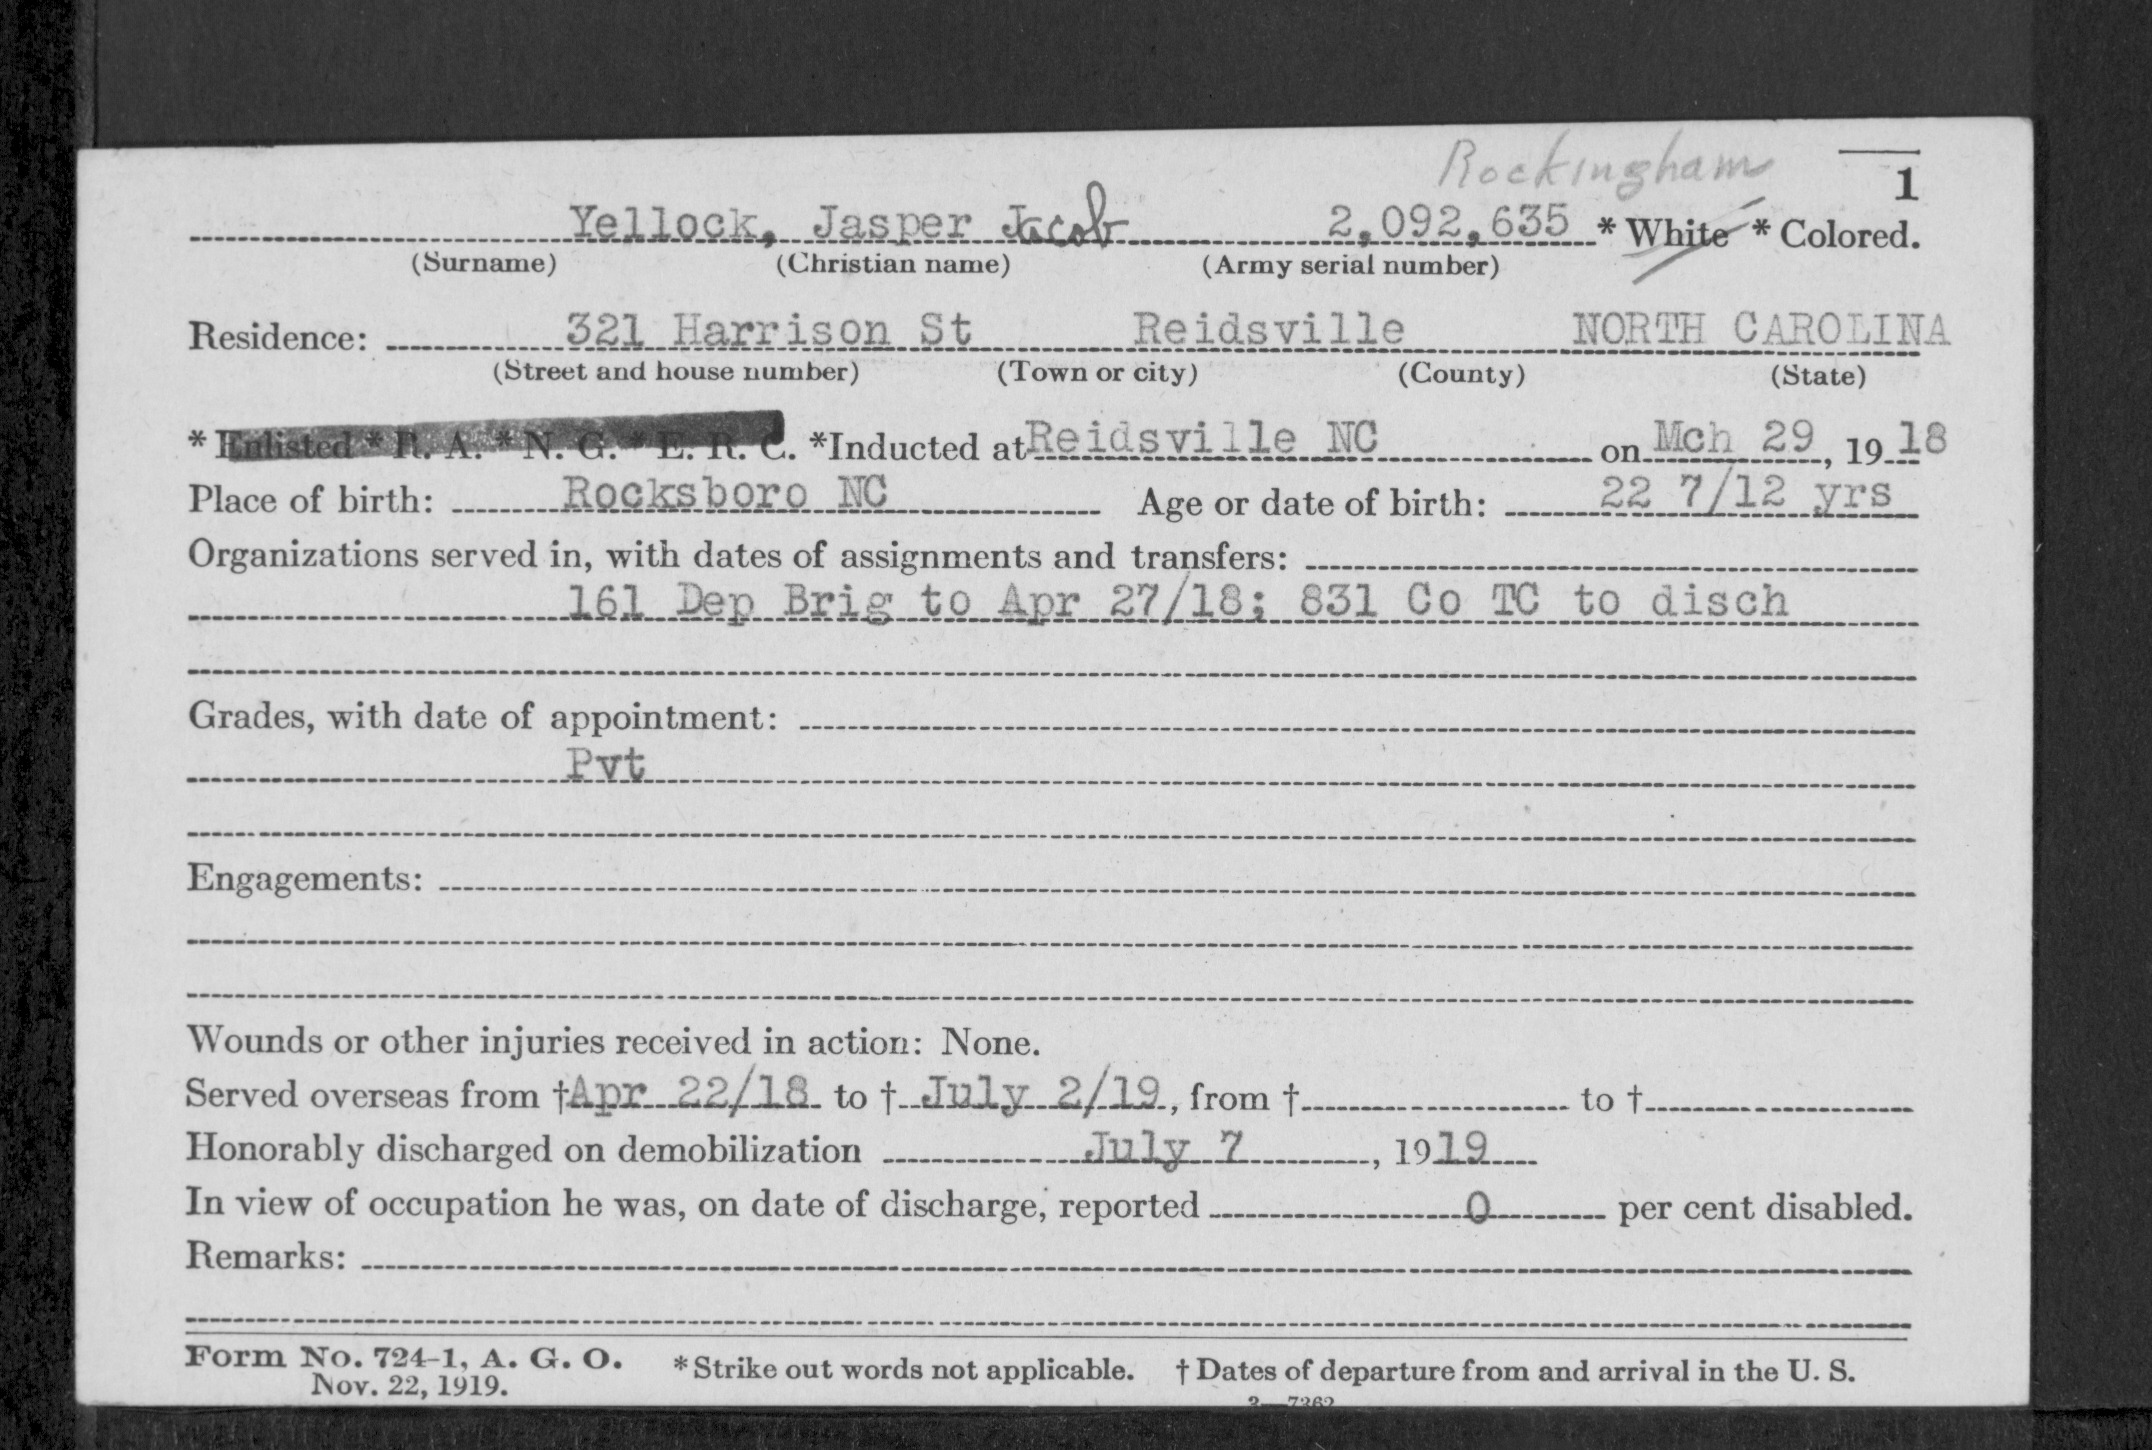 Rockingham
1
Yellock, Jasper Jacob 2,092,635 * White * Colored.
(Surname) (Christian name) (Army serial number)
Residence: 321 Harrison St Reidsville NORTH CAROLINA
(Street and house number) (Town or city) (County) (State)
* Enlisted * R. A. * N. G. * E. R. C. *Inducted at Reidsville NC on Mch 29, 19 18
Place of birth: Rocksboro NC Age or date of birth: 22 7/12 yrs
Organizations served in, with dates of assignments and transfers:
161 Dep Brig to Apr 27/18; 831 Co TC to disch
Grades, with date of appointment:
Pvt
Engagements:
Wounds or other injuries received in action: None.
Served overseas from †Apr 22/18 to † July 2/19, from † to †
Honorably discharged on demobilization July 7, 1919
In view of occupation he was, on date of discharge, reported 0 per cent disabled.
Remarks:
Form No. 724-1, A. G. O. * Strike out words not applicable. † Dates of departure from and arrival in the U. S.
Nov. 22, 1919.
3—7362